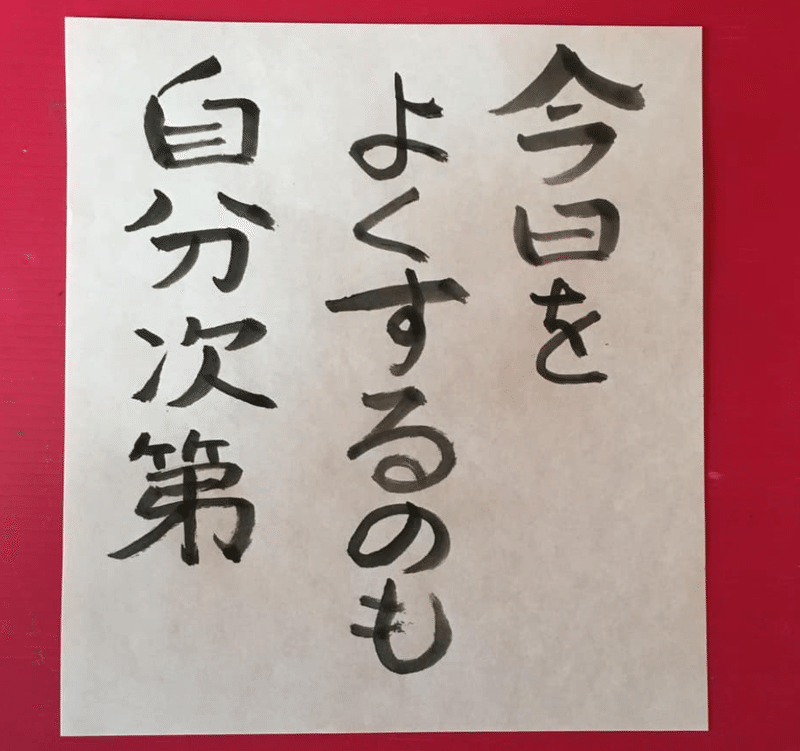 今日を
よくするのも
自分次第